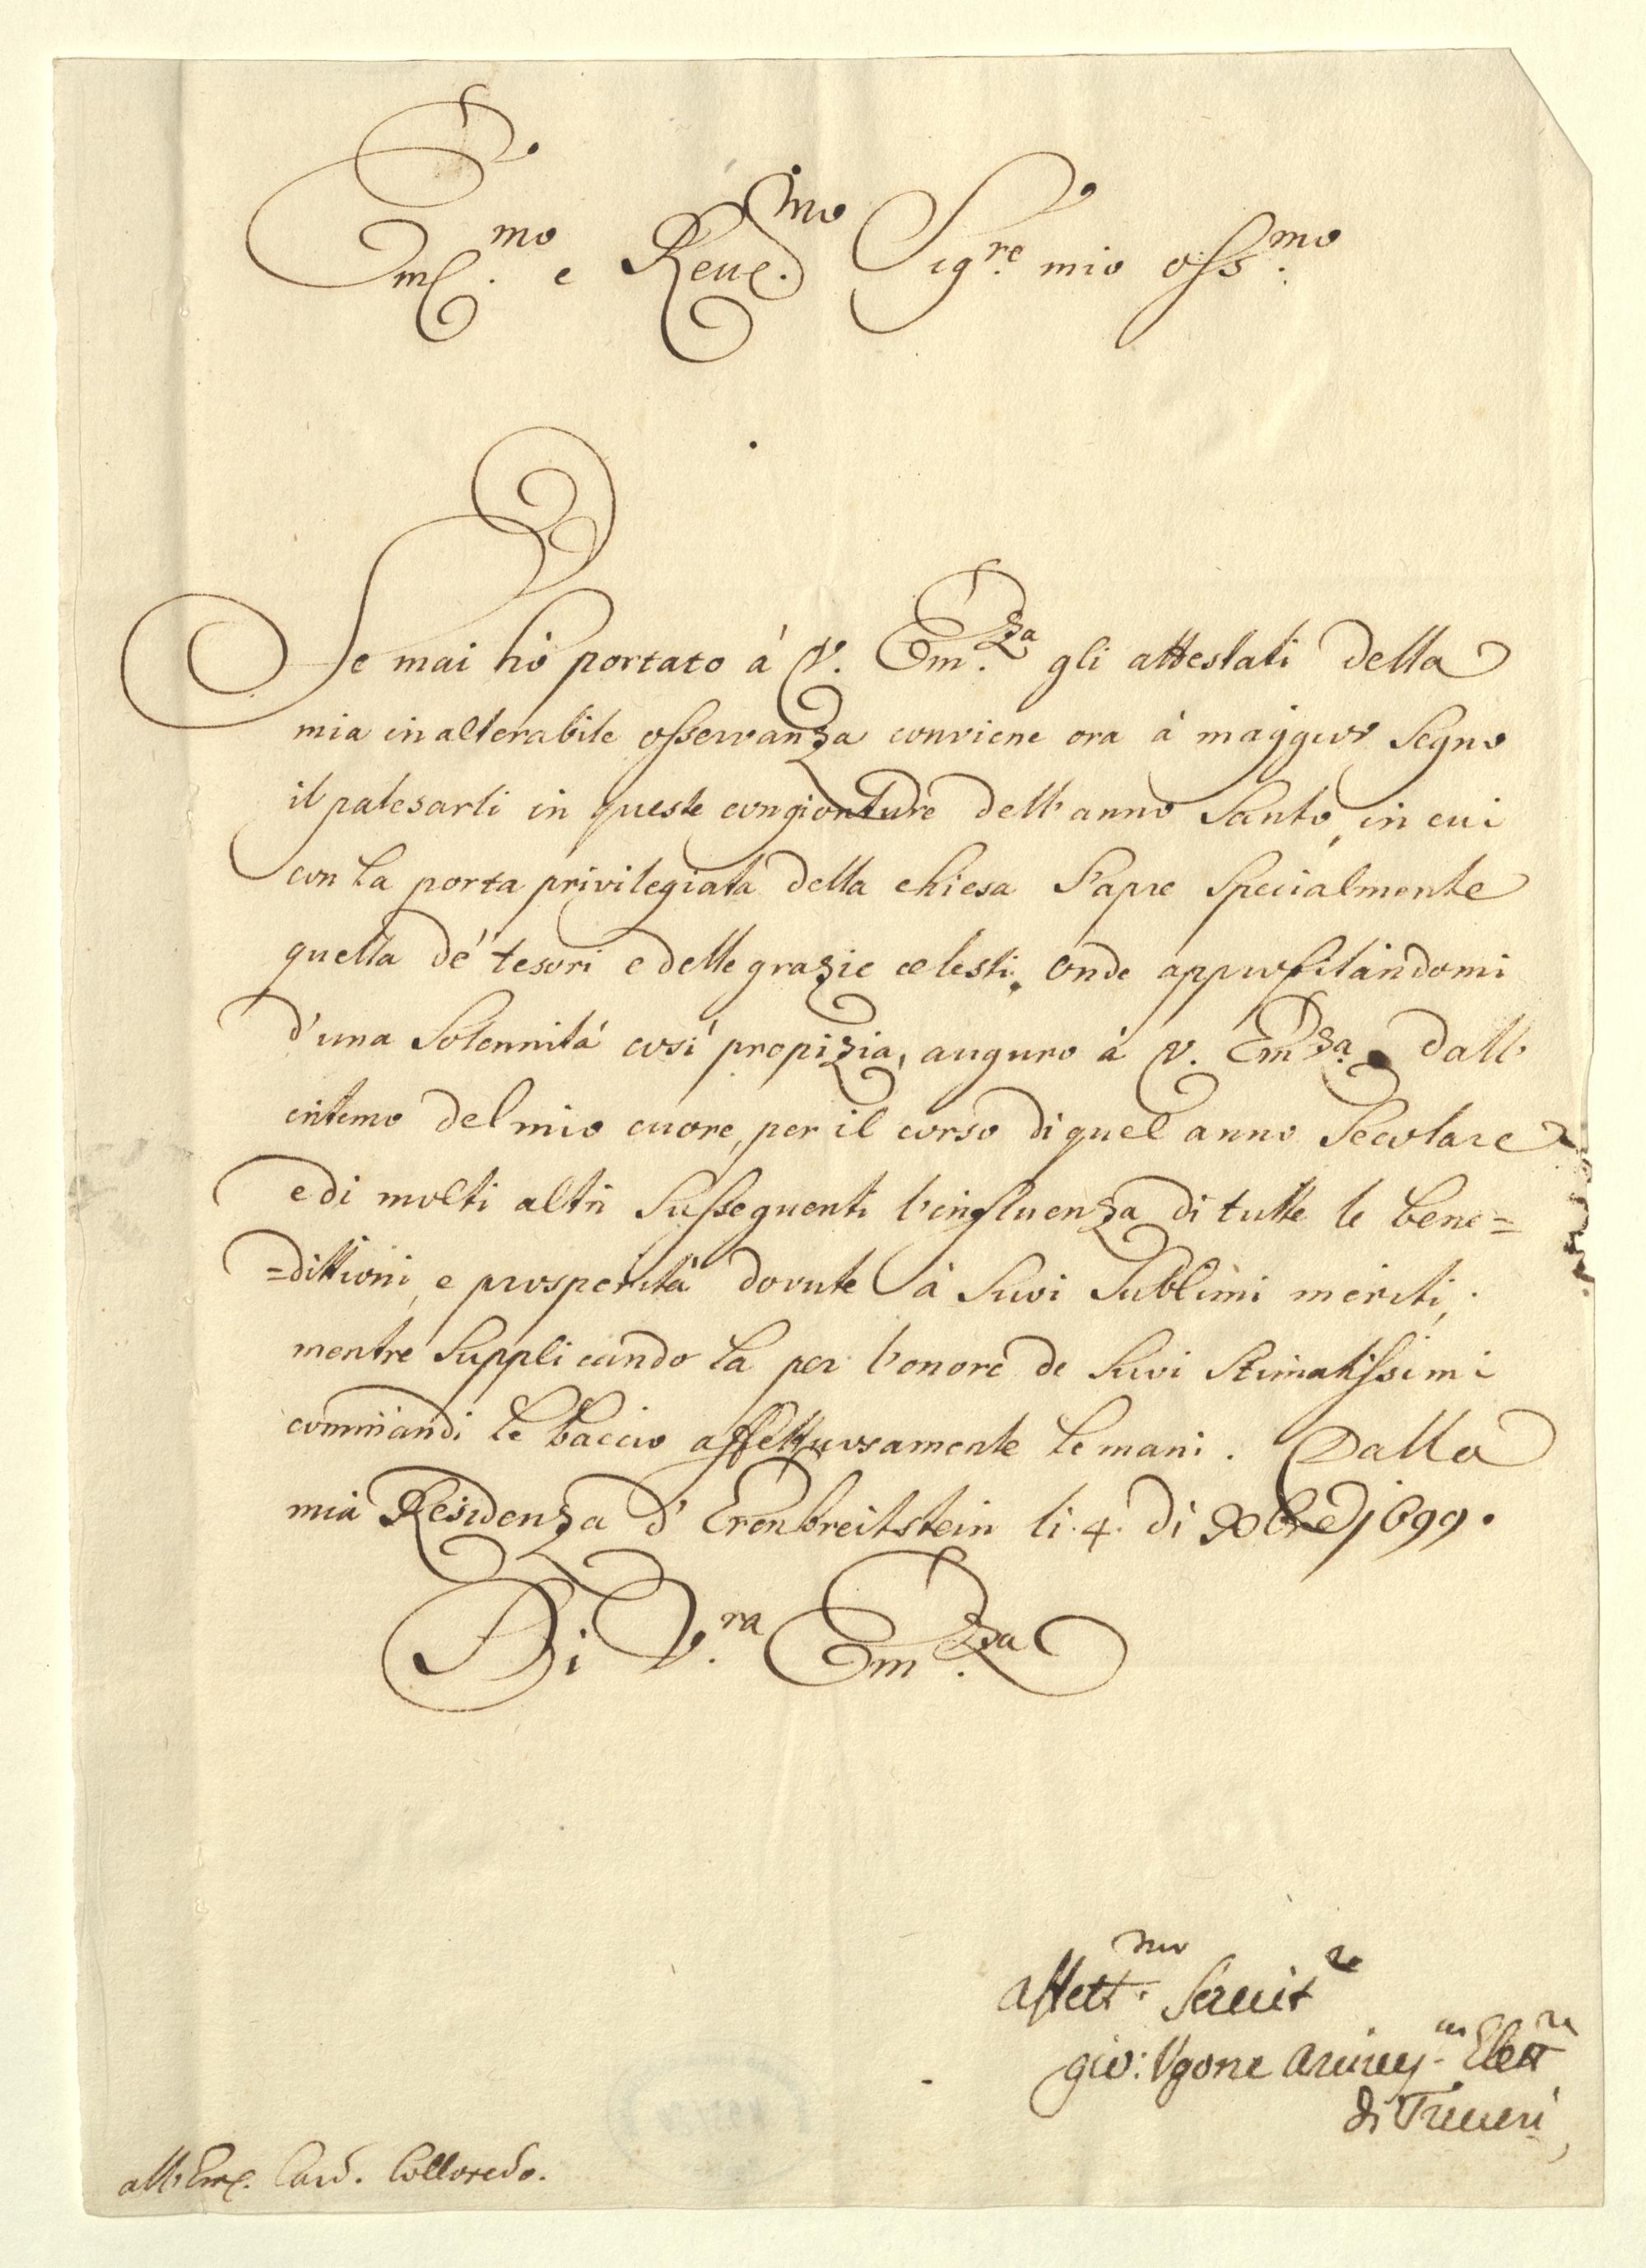 Em.mo e Reue.mo Sig.re mio oss.mo
Se mai hò portato à V. Em.za gli attestati della
mia inalterabile osservanza conviene ora à maggior Segno
il palesarli in queste congionture dell'anno Santo, in cui
con la porta privilegiata della chiesa s'apre specialmente
quella de' tesori e delle grazie celesti. Onde approfitandomi
d'una Solennità così propizia, auguro à V. Em.za dall'
intemo del mio cuore, per il corso di quel anno Secolare
e di molti altri susseguenti l'influenza di tutte le bene=
=dittioni, e prosperità dovute à Suoi Sublimi meriti;
mentre supplicandola per l'onore de suoi stimatissimi
commandi le baccio affettuosamente le mani. Dalla
mia Residenza d'Erenbreitstein li 4. di Xbre 1699.
Di V.ra Em.za
affett.mo Seruit.re
gio: Vgone Arciuey. Elett.re
di Treueri
all'Em. Card. Colloredo.